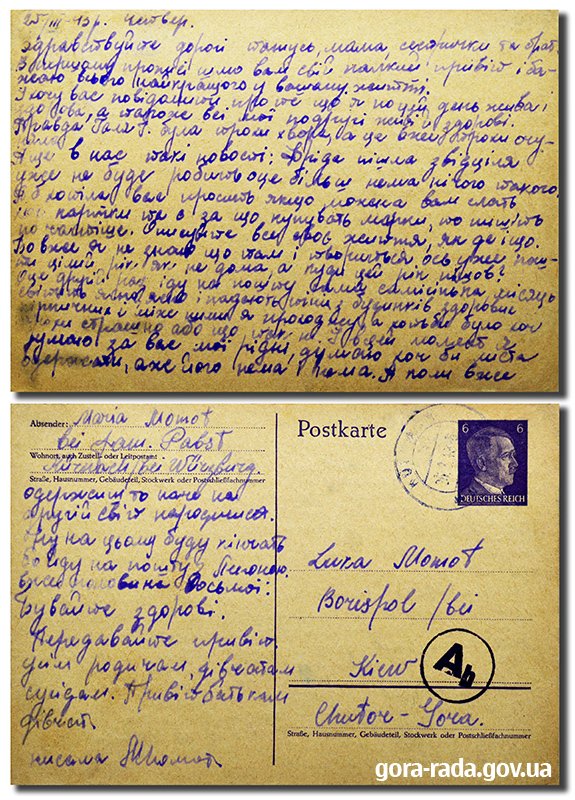 25/III-43р. Четвер.
Здравствуйте дорогі татусь, мама сестрички та брат.
В першому прошусі шлю вам свій палкий привіт і ба-
жаю всього найкращого у вашому житті.
Хочу вас повідомити про те що я по цей день жива і
здорова, а також всі мої подруги живі здорові.
Правда Галя була трохи хвора, а це вже трохи оду-
І ще в нас такі новості: Фріда пішла звідціля
уже не буде робить оце більш нема нічого такого.
Я б хотіла вас просить якщо можна вам слать
такі картки та є за що купувать марки, то пишіть
по частіше. Опишіте все своє життя, як де і що.
Бо вже я не знаю що там і твориться ось уже
та цілий рік як не дома, а куди цей рік пішов?
Оце другий раз іду на пошту сама самісінька місяць
світить ясно, ясно і падають тіні з будинків здорових
кирпичних і між ними я проходжу, а хотьби було хоч
трохи страшно або що так ні. І в цей момент я
думаю за вас мої рідні, думаю хоч би листа
одержати, аж його нема і нема. А коли вже
Absender: Maria Momot
bei Pabst
Wohnort, auch Zustell- oder Leitpostamt
bei Würzburg.
Straße, Hausnummer, Gebäudeteil, Stockwerk oder Postschließfachnummer
одержиш то наче на
другій світ народишся.
Ну на цьому буду кінчать
бо йду на пошту з
вже половина восьмої.
Бувайте здорові.
Передавайте привіт
усім родичам, дівчатам
сусідам. Привіт батькам
дівчат.
писала М. Момот
Postkarte
6 6
DEUTSCHES REICH
Luka Momot
Borispol /bei
Kiew
Ab
Chutor-Gora.
Straße, Hausnummer, Gebäudeteil, Stockwerk oder Postschließfachnummer
gora-rada.gov.ua